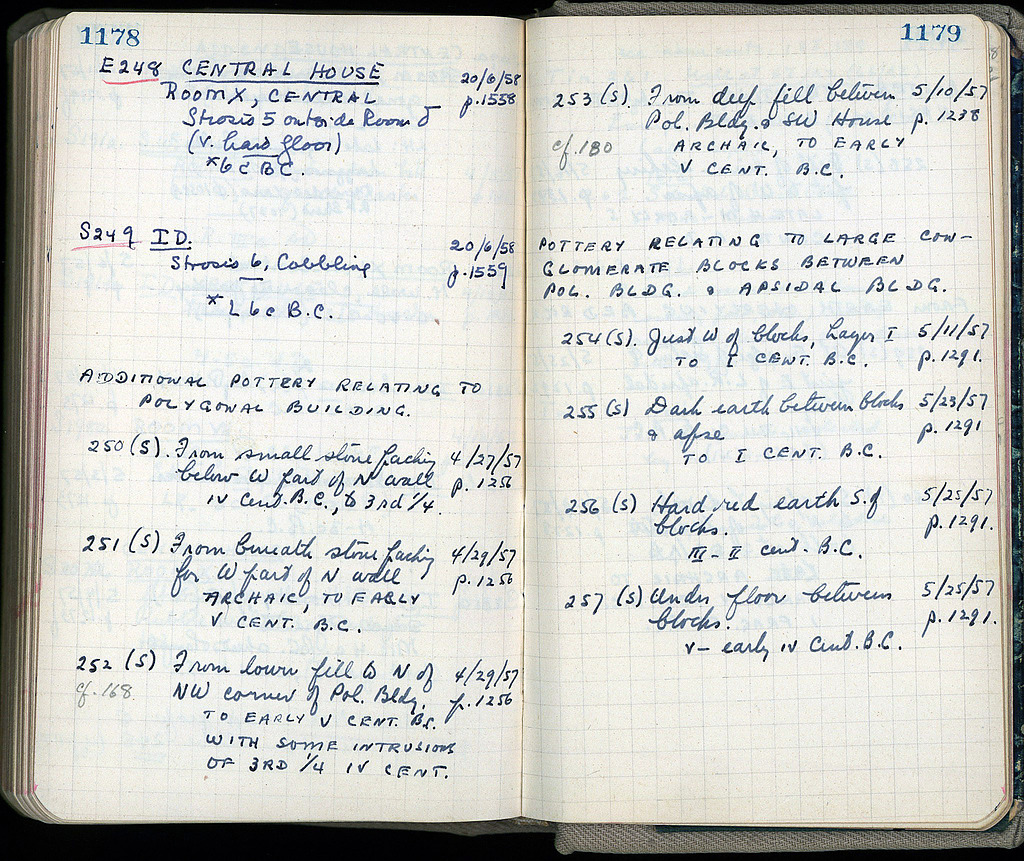 1178
E248 CENTRAL HOUSE 20/6/58
ROOM X, CENTRAL p.1558
Strosis 5 outside Room 5
(v. hard floor)
*6 c BC.
S249 ID. 20/6/58
Strosis 6, Cobbling p.1559
* L 6 c B.C.
ADDITIONAL POTTERY RELATING TO
POLYGONAL BUILDING.
250 (S). From small stone packing 4/27/57
below W part of N wall p.1256
IV Cent. B.C., to 3rd 1/4.
251 (S) From beneath stone packing 4/29/57
for W part of N wall p.1256
ARCHAIC, TO EARLY
V CENT. B.C.
252 (S) From lower fill to N of 4/29/57
cf. 168 NW corner of Pol. Bldg. p.1256
TO EARLY V CENT. B.C.
WITH SOME INTRUSIONS
OF 3RD 1/4 IV CENT.
1179
253 (S). From deep fill between 5/10/57
Pol. Bldg. & SW House p. 1238
cf. 180 ARCHAIC, TO EARLY
V CENT. B.C.
POTTERY RELATING TO LARGE CON-
GLOMERATE BLOCKS BETWEEN
POL. BLDG. & APSIDAL BLDG.
254 (S). Just W of blocks, Layer I 5/11/57
TO I CENT. B.C. p.1291.
255 (S) Dark earth between blocks 5/23/57
& apse p. 1291
TO I CENT. B.C.
256 (S) Hard red earth S. of 5/25/57
blocks. p.1291.
III - II cent. B.C.
257 (S) Under floor between 5/25/57
blocks. p.1291.
V - early IV Cent. B.C.